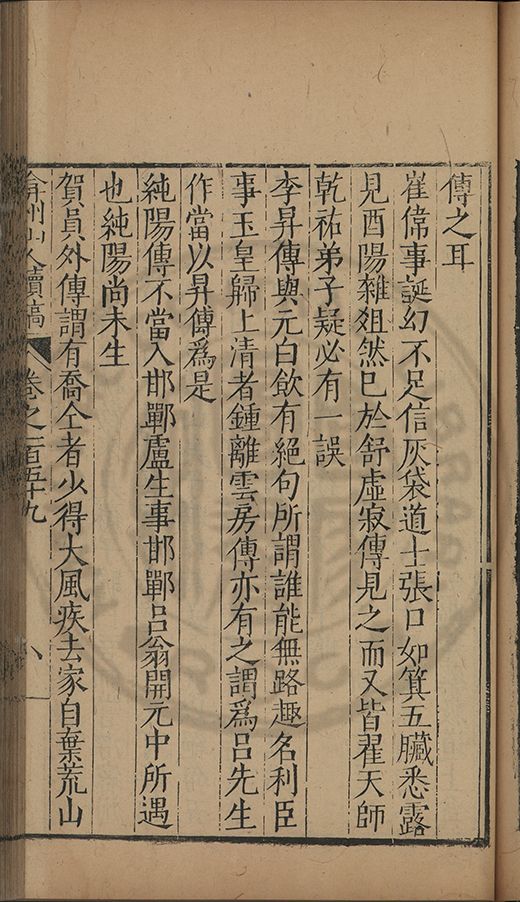 傳之耳
崔偉事誕幻不足信灰袋道士張口如箕五臟悉露
見酉陽雜俎然已於舒虛寂傳見之而又皆翟天師
乾祐弟子疑必有一誤
李昇傳與元白飲有絕句所謂誰能無路趣名利臣
事玉皇歸上清者鍾離雲房傳亦有之謂爲呂先生
作當以昇傳爲是
純陽傳不當入邯鄲盧生事邯鄲呂翁開元中所遇
也純陽尚未生
賀員外傳謂有喬仝者少得大風疾去家自棄荒山
弇州山人續稿 卷之一百五十九 八